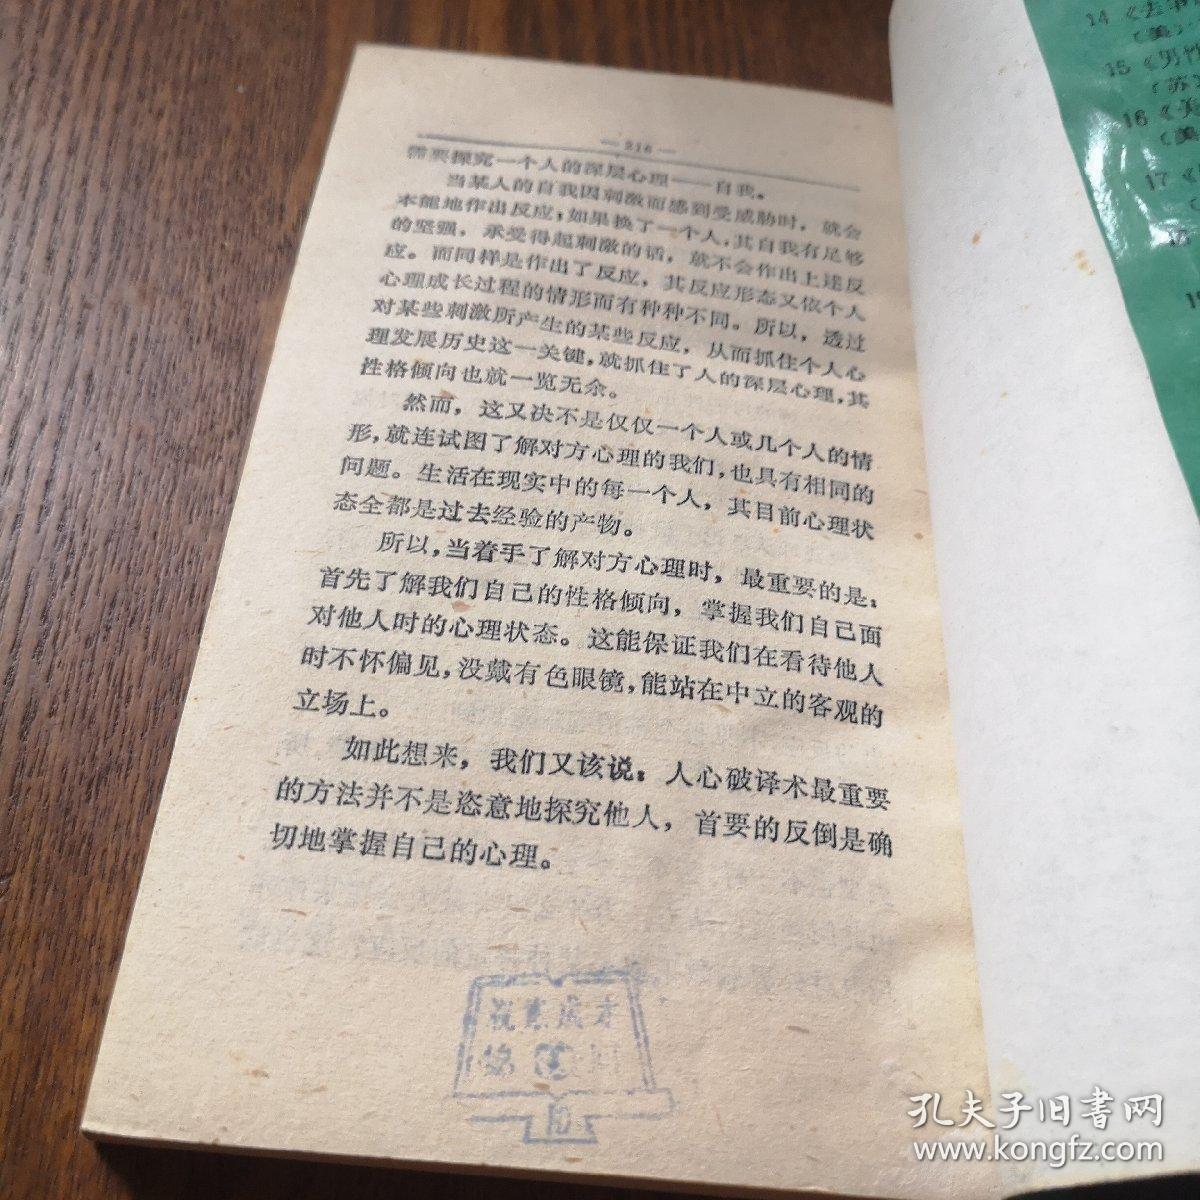 — 216 —
需要探究一个人的深层心理——自我。
当某人的自我因刺激而感到受威胁时，就会
本能地作出反应；如果换了一个人，其自我有足够
的坚强，承受得起刺激的话，就不会作出上述反
应。而同样是作出了反应，其反应形态又依个人
心理成长过程的情形而有种种不同。所以，透过
对某些刺激所产生的某些反应，从而抓住个人心
理发展历史这一关键，就抓住了人的深层心理，其
性格倾向也就一览无余。
然而，这又决不是仅仅一个人或几个人的情
形，就连试图了解对方心理的我们，也具有相同的
问题。生活在现实中的每一个人，其目前心理状
态全都是过去经验的产物。
所以，当着手了解对方心理时，最重要的是：
首先了解我们自己的性格倾向，掌握我们自己面
对他人时的心理状态。这能保证我们在看待他人
时不怀偏见，没戴有色眼镜，能站在中立的客观的
立场上。
如此想来，我们又该说：人心破译术最重要
的方法并不是恣意地探究他人，首要的反倒是确
切地掌握自己的心理。
14《
（美）
15《男性
（苏
16《
（美
17《
孔夫子旧书网
www.kongfz.com